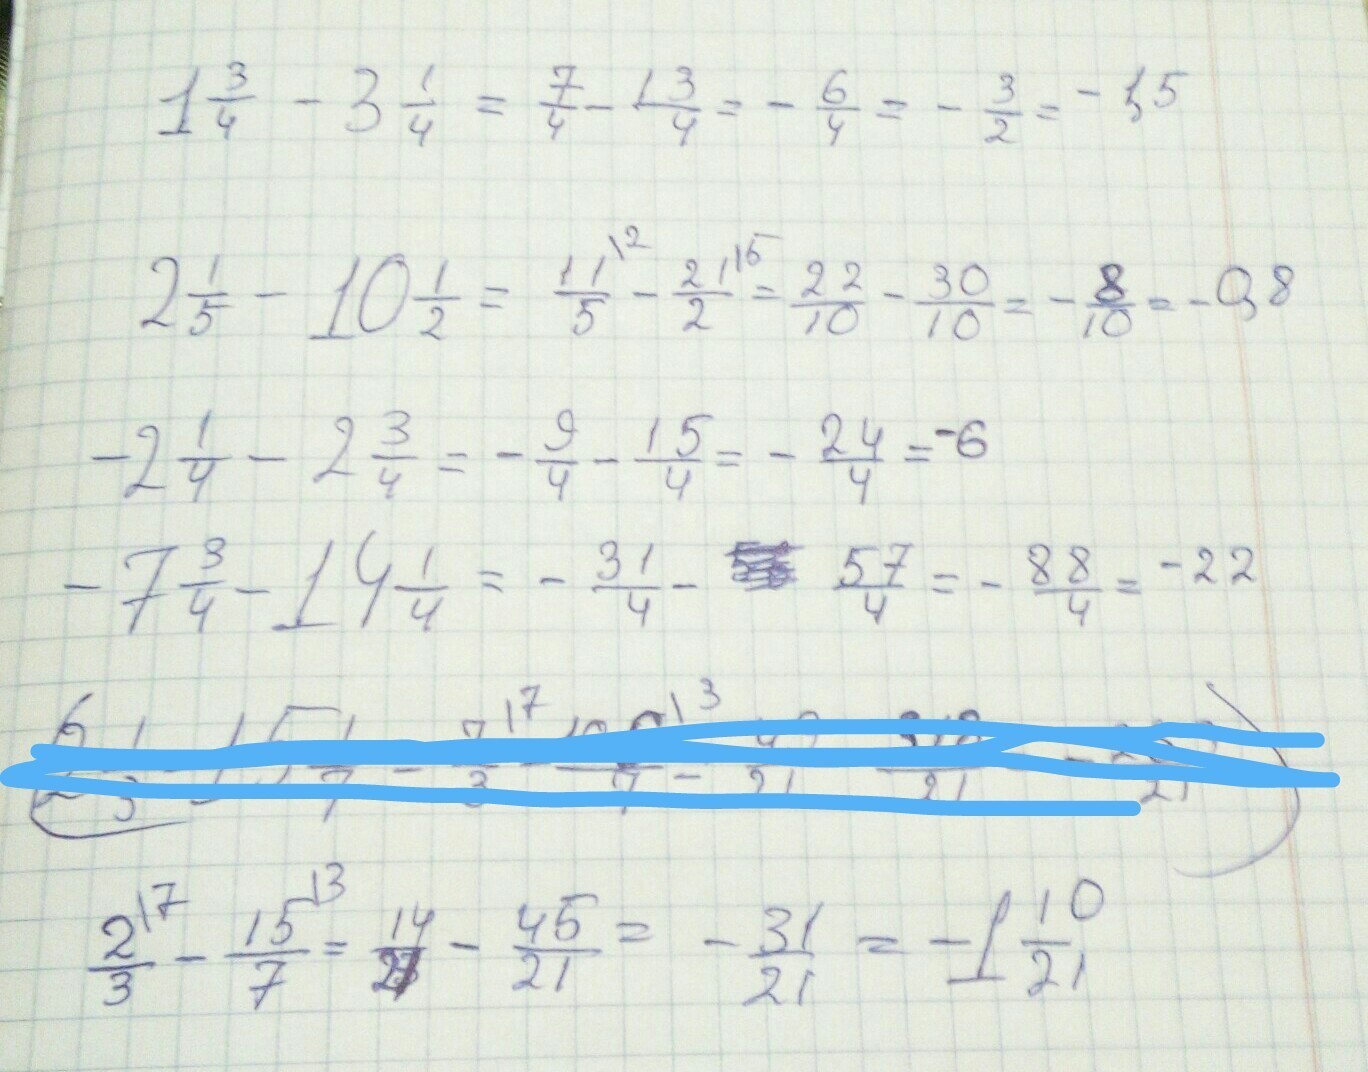 1 3/4 - 3 1/4 = 7/4 - 13/4 = - 6/4 = - 3/2 = - 1,5
2 1/5 - 10 1/2 = 11/5 \2 - 21/2 \5 = 22/10 - 30/10 = - 8/10 = - 0,8
- 2 1/4 - 2 3/4 = - 9/4 - 15/4 = - 24/4 = -6
- 7 3/4 - 14 1/4 = - 31/4 - 57/4 = - 88/4 = -22
2/3 \7 - 15/7 \3 = 14/21 - 45/21 = - 31/21 = - 1 10/21